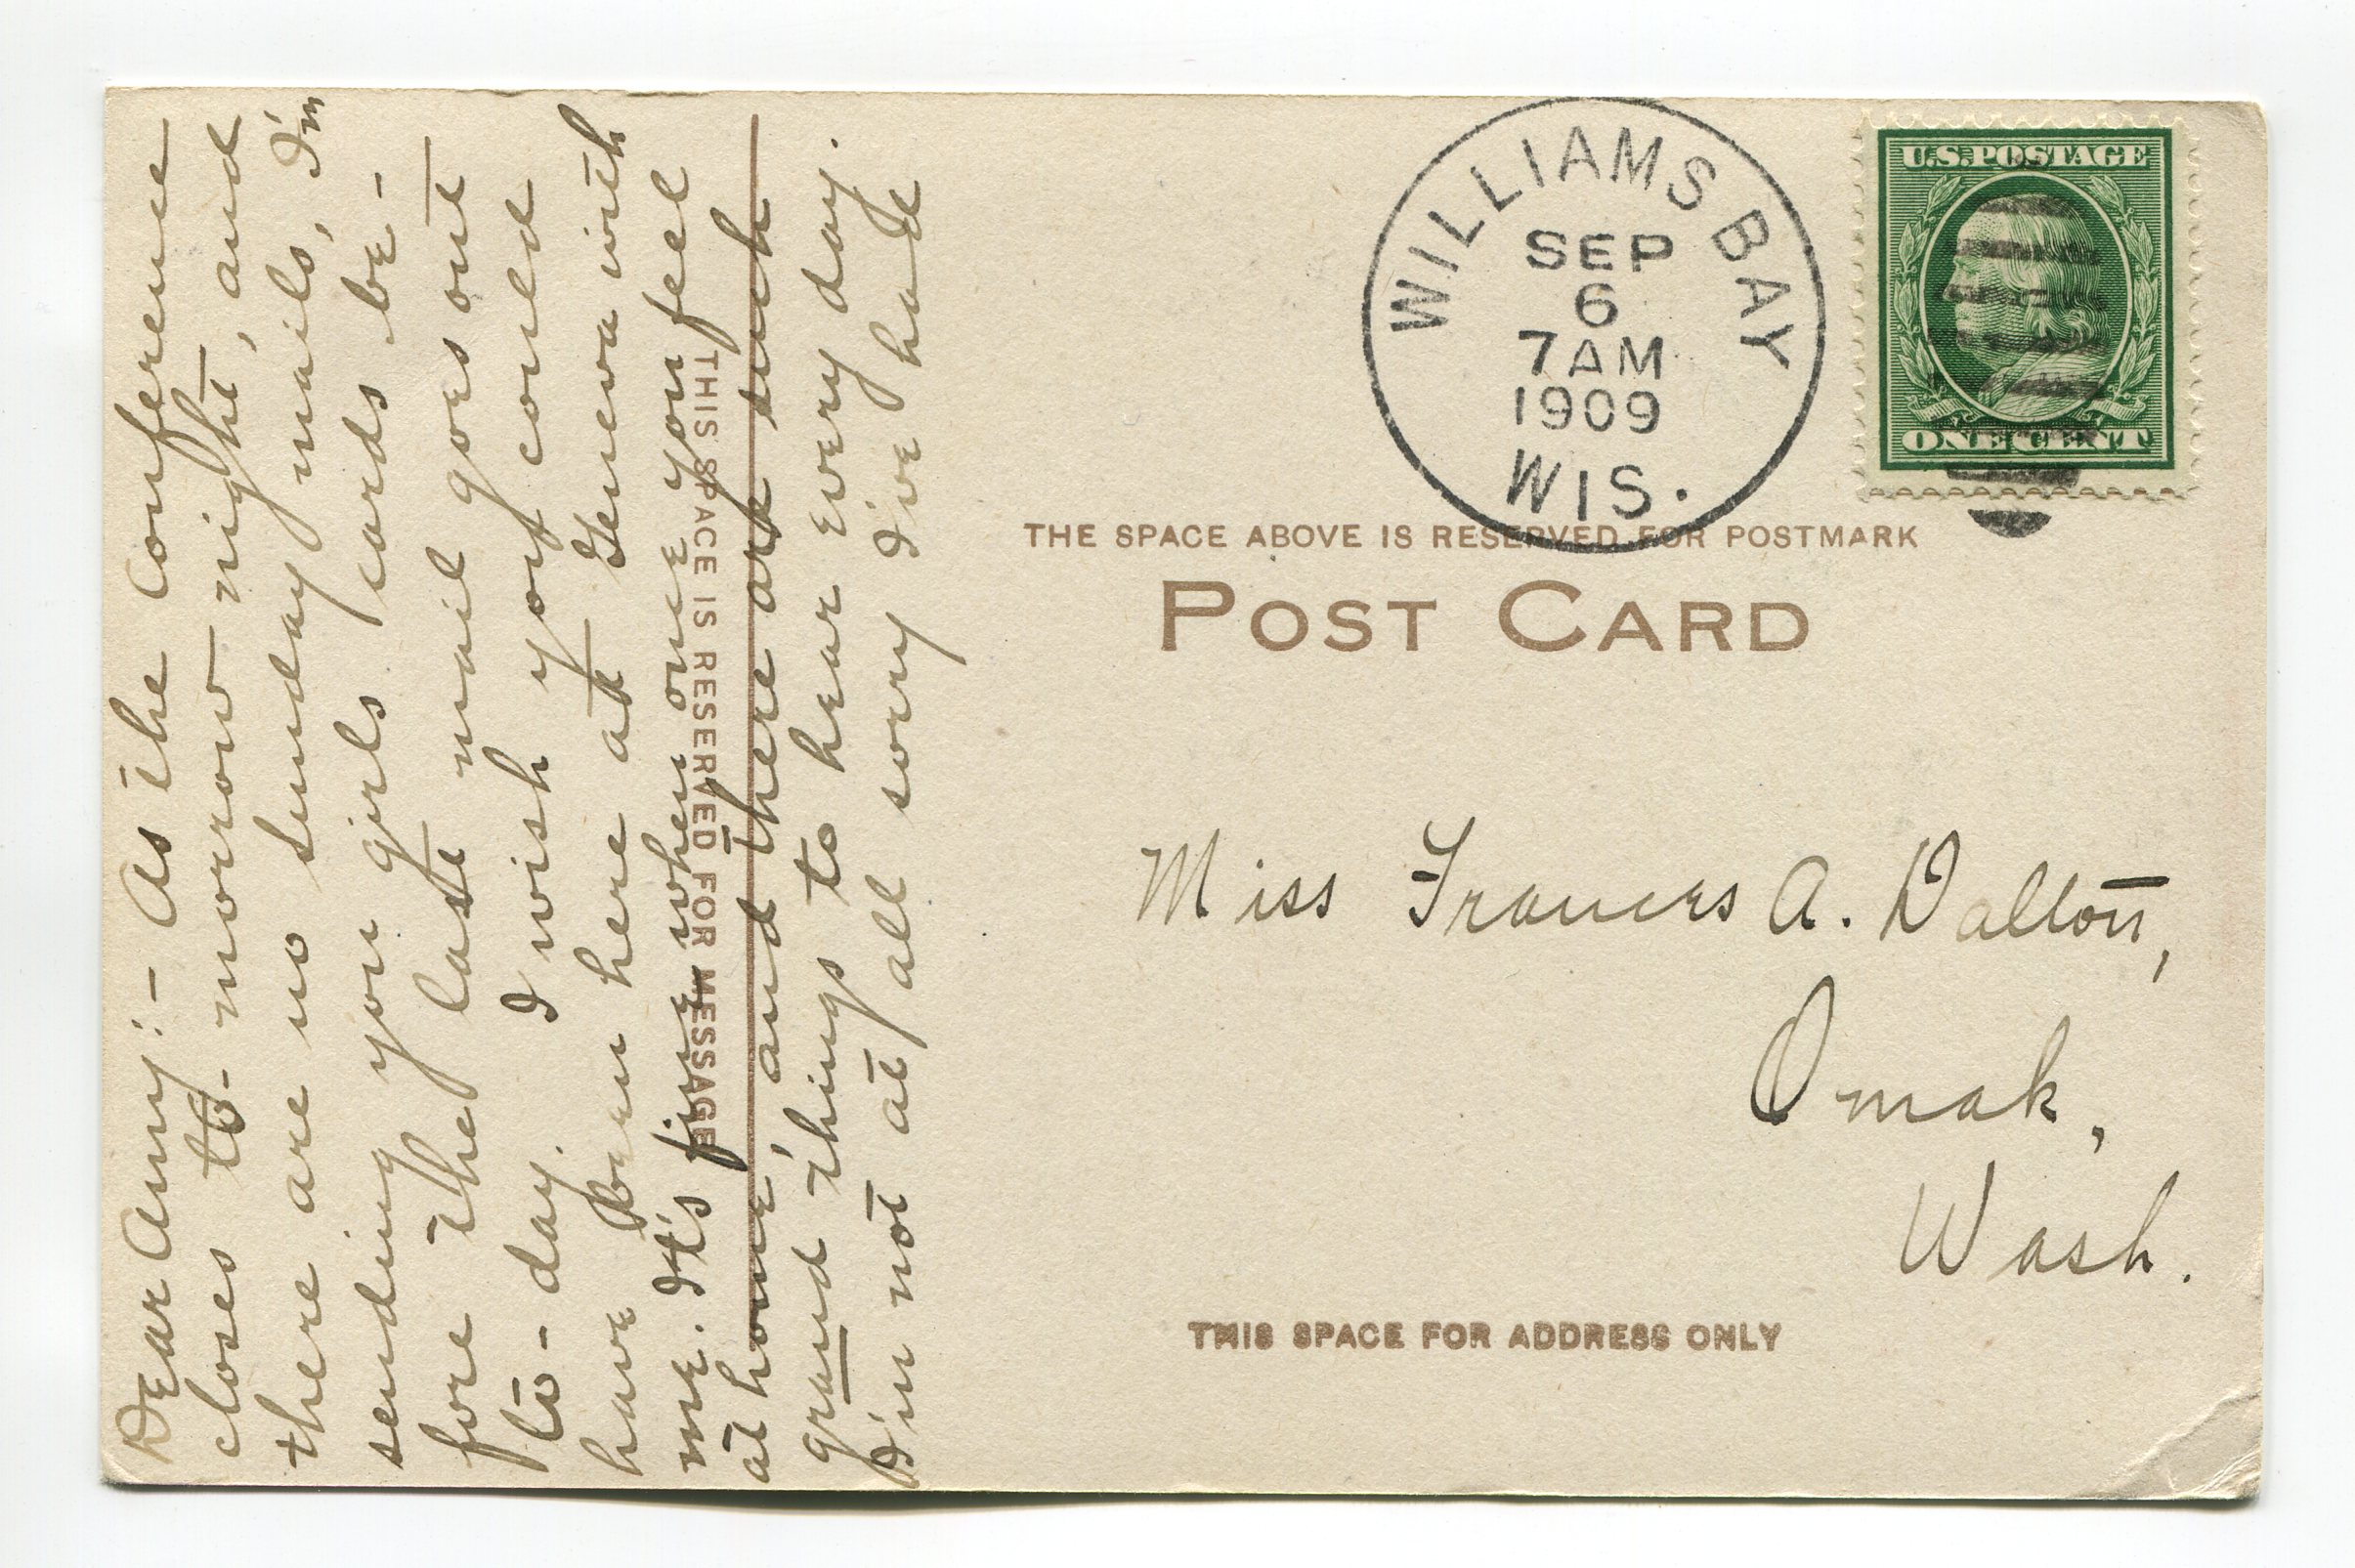 Dear Amy:- As the Conference
closes to-morrow night, and
there are no Sunday mails, I'm
sending you girls cards be-
fore the last mail goes out
to-day. I wish you could
have been here at Geneva with
me. It's fine when once you feel
at home, and there are such
grand things to hear every day.
I'm not at all sorry I've had
THIS SPACE IS RESERVED FOR MESSAGE
WILLIAMS BAY
SEP
6
7 AM
1909
WIS.
U.S. POSTAGE
ONE CENT
THE SPACE ABOVE IS RESERVED FOR POSTMARK
POST CARD
Miss Frances A. Dalton,
Omak,
Wash.
THIS SPACE FOR ADDRESS ONLY